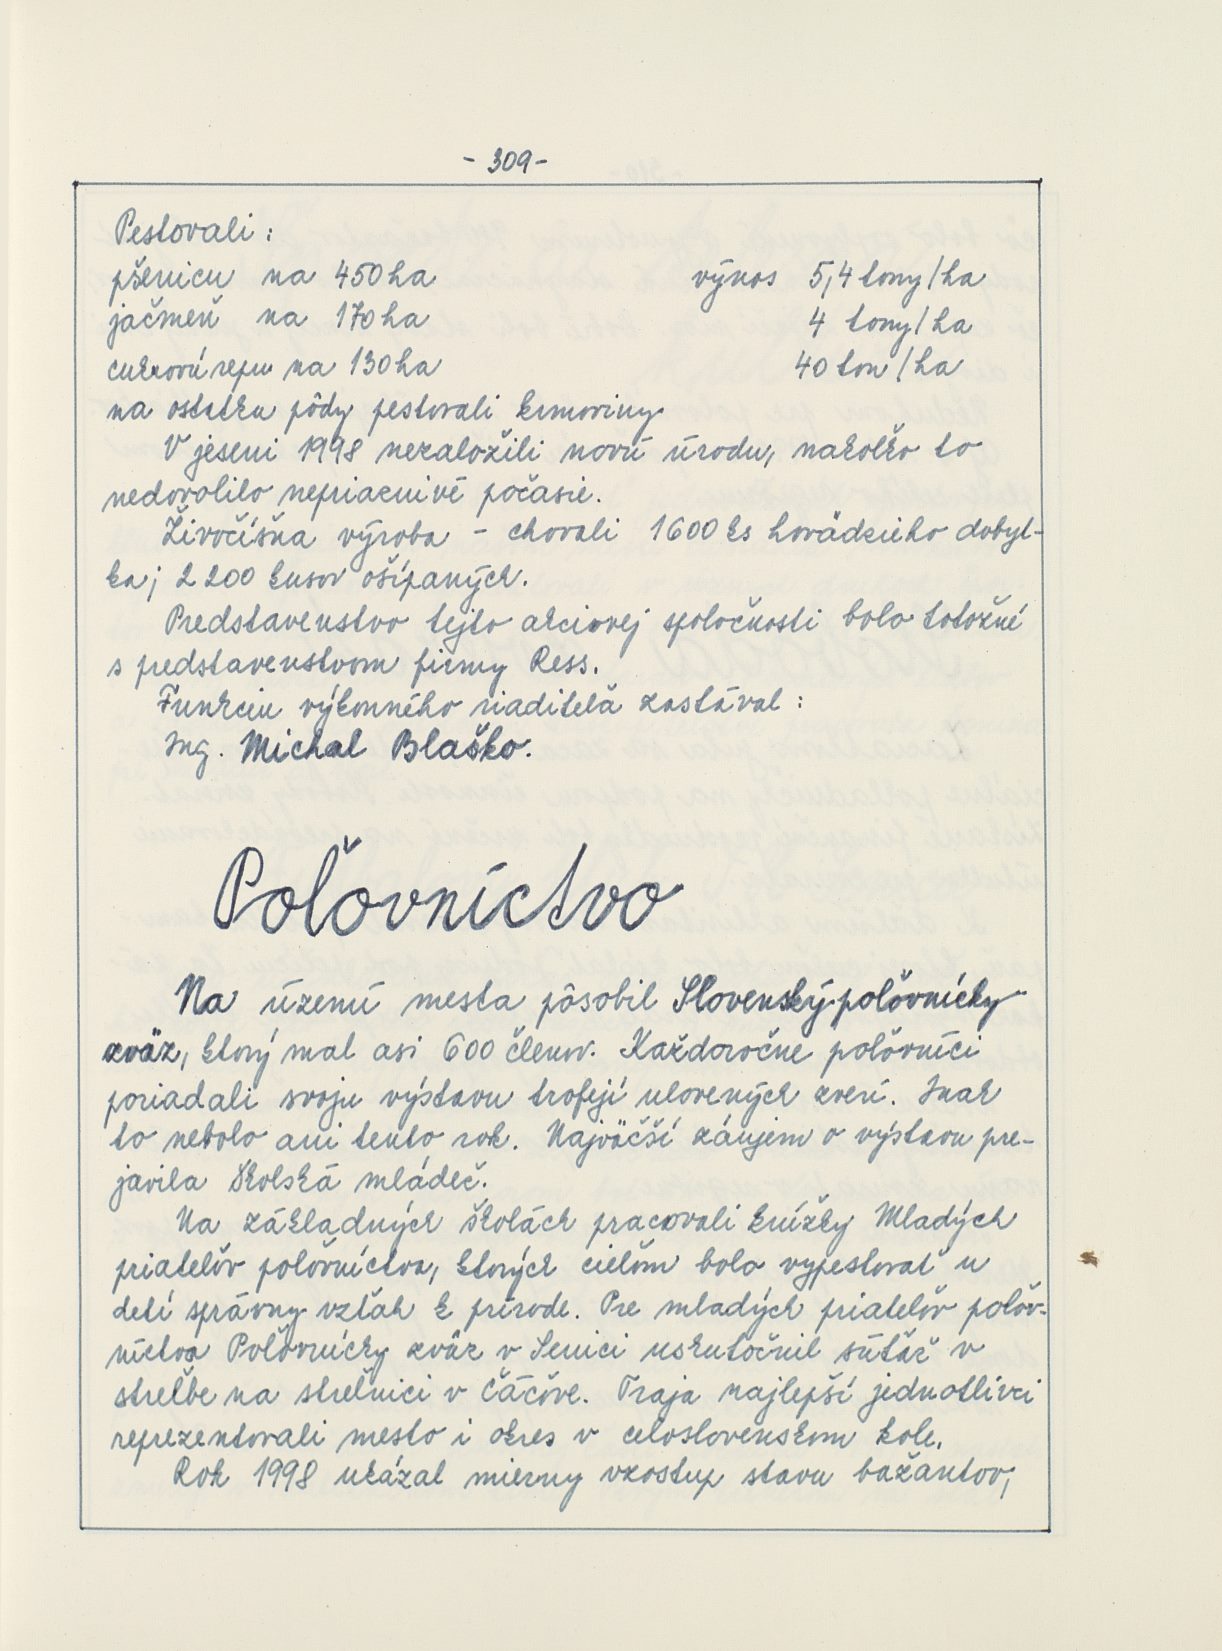 - 309 -
Pestovali :
pšenicu na 450 ha výnos 5,4 tony/ha
jačmeň na 170 ha 4 tony/ha
cukrovú repu na 130 ha 40 ton/ha
na ostatku pôdy pestovali krmoviny.
V jeseni 1998 nezaložili novú úrodu, nakoľko to
nedovolilo nepriaznivé počasie.
Živočíšna výroba - chovali 1600 ks hovädzieho dobyt-
ka; 2 200 kusov ošípaných.
Predstavenstvo tejto akciovej spoločnosti bolo totožné
s predstavenstvom firmy Ress.
Funkciu výkonného riaditeľa zastával :
Ing. Michal Blaško.
Poľovníctvo
Na území mesta pôsobil Slovenský poľovnícky
zväz, ktorý mal asi 600 členov. Každoročne poľovníci
poriadali svoju výstavu trofejí ulovených zverí. Inak
to nebolo ani tento rok. Najväčší záujem o výstavu pre-
javila školská mládež.
Na základných školách pracovali krúžky Mladých
priateľov poľovníctva, ktorých cieľom bolo vypestovať u
detí správny vzťah k prírode. Pre mladých priateľov poľov-
níctva Poľovnícky zväz v Senici uskutočnil súťaž v
streľbe na strelnici v Čáčove. Traja najlepší jednotlivci
reprezentovali mesto i okres v celoslovenskom kole.
Rok 1998 ukázal mierny vzostup stavu bažantov,